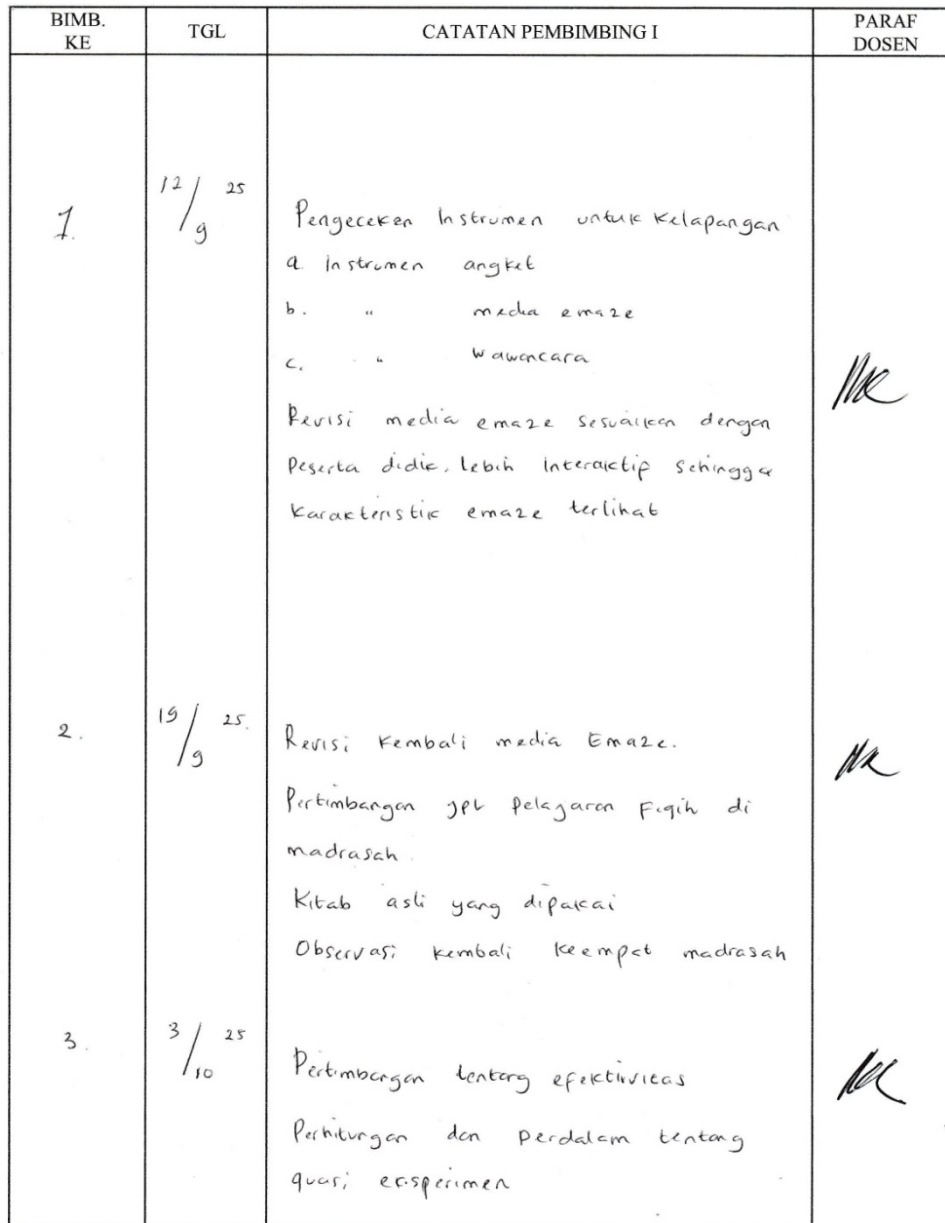 BIMB. KE TGL CATATAN PEMBIMBING I PARAF DOSEN
1. 12/9 25 Pengecekan Instrumen untuk kelapangan
a. instrumen angket
b. " media emaze
c. " wawancara
Revisi media emaze sesuaikan dengan
Peserta didik, lebih interaktif sehingga
karakteristik emaze terlihat
2. 19/9 25. Revisi kembali media Emaze.
Pertimbangan pelajaran Fiqih di
madrasah.
Kitab asli yang dipakai
Observasi kembali keempat madrasah
3. 3/10 25 Pertimbangan tentang efektivitas
Perhitungan dan Perdalam tentang
quasi eksperimen